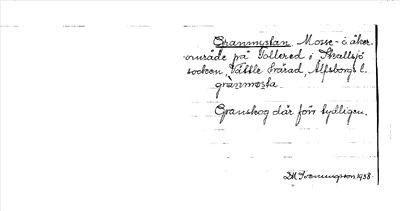 Granmystan. Mosse- o. åker-
område på Tollered i Skallsjö
socken, Vättle härad, Älfsborgs l.
grànmǫsta.
Granskog där förr tydligen.
DM Svenningsson 1938